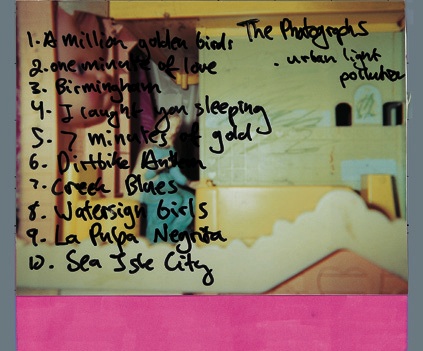 1. A million golden birds
2. one minute of love
3. Birmingham
4. I caught you sleeping
5. 7 minutes of gold
6. Dirtbike Anthem
7. Creek Blues
8. Watersign Girls
9. La Pulpa Negrita
10. Sea Isle City
The Photographs
- urban light
pollution